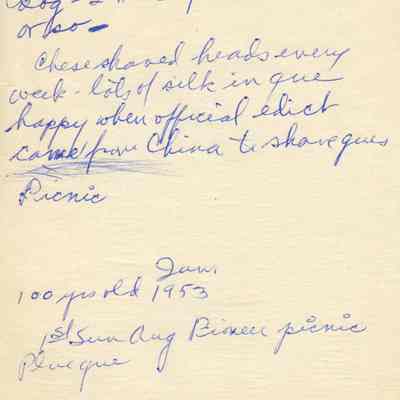 or so
Chese shaved heads every
week - lots of silk in que
happy when official edict
came from China to shave ques
Picnic
Jan.
100 yrs old 1953
1st Sun Aug Pioneer picnic